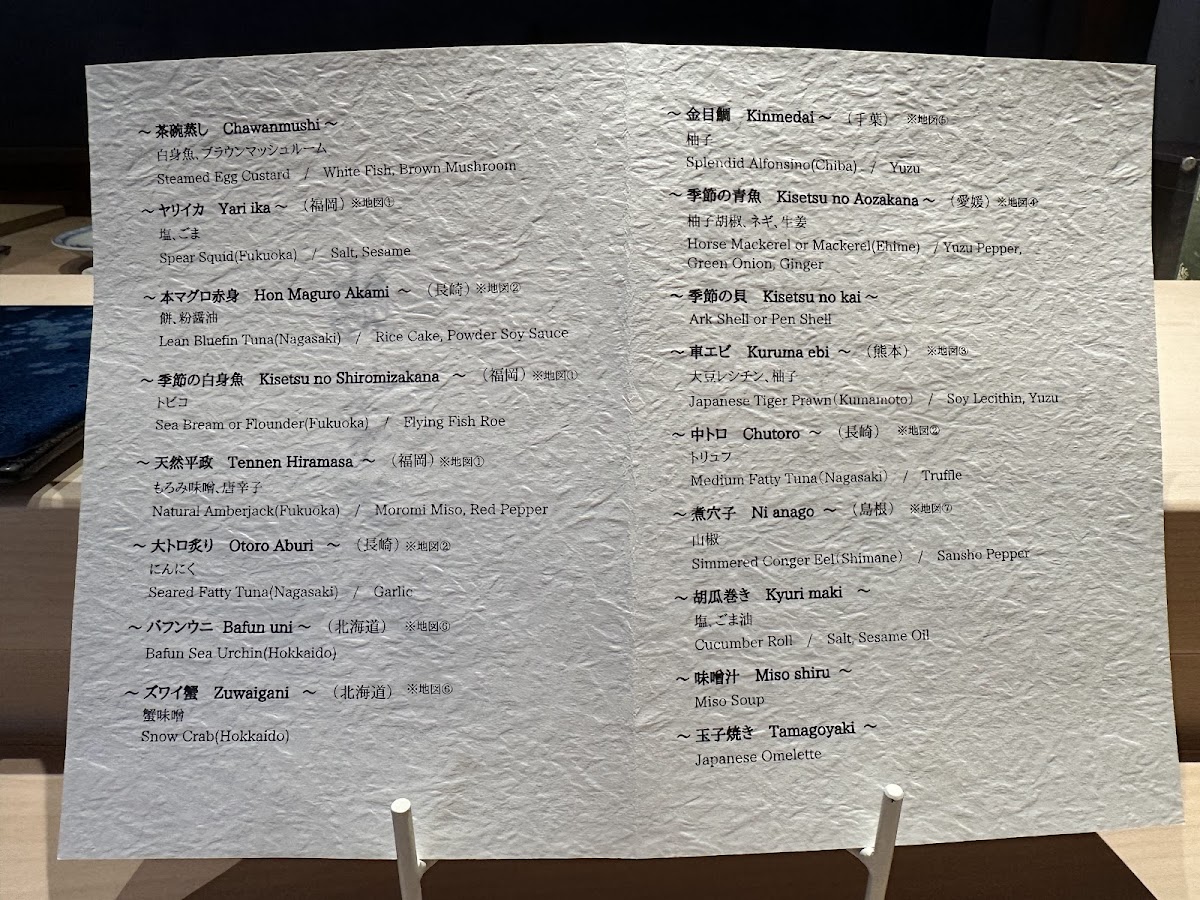 ～ 茶碗蒸し Chawanmushi ～
白身魚、ブラウンマッシュルーム
Steamed Egg Custard / White Fish, Brown Mushroom
～ ヤリイカ Yari ika ～ （福岡） ※地図①
塩、ごま
Spear Squid(Fukuoka) / Salt, Sesame
～ 本マグロ赤身 Hon Maguro Akami ～ （長崎） ※地図②
餅、粉醤油
Lean Bluefin Tuna(Nagasaki) / Rice Cake, Powder Soy Sauce
～ 季節の白身魚 Kisetsu no Shiromizakana ～ （福岡） ※地図①
トビコ
Sea Bream or Flounder(Fukuoka) / Flying Fish Roe
～ 天然平政 Tennen Hiramasa ～ （福岡） ※地図①
もろみ味噌、唐辛子
Natural Amberjack(Fukuoka) / Moromi Miso, Red Pepper
～ 大トロ炙り Otoro Aburi ～ （長崎） ※地図②
にんにく
Seared Fatty Tuna(Nagasaki) / Garlic
～ バフンウニ Bafun uni ～ （北海道） ※地図⑥
Bafun Sea Urchin(Hokkaido)
～ ズワイ蟹 Zuwaigani ～ （北海道） ※地図⑥
蟹味噌
Snow Crab(Hokkaido)
～ 金目鯛 Kinmedai ～ （千葉） ※地図⑤
柚子
Splendid Alfonsino(Chiba) / Yuzu
～ 季節の青魚 Kisetsu no Aozakana ～ （愛媛） ※地図④
柚子胡椒、ネギ、生姜
Horse Mackerel or Mackerel(Ehime) / Yuzu Pepper,
Green Onion, Ginger
～ 季節の貝 Kisetsu no kai ～
Ark Shell or Pen Shell
～ 車エビ Kuruma ebi ～ （熊本） ※地図③
大豆レシチン、柚子
Japanese Tiger Prawn(Kumamoto) / Soy Lecithin, Yuzu
～ 中トロ Chutoro ～ （長崎） ※地図②
トリュフ
Medium Fatty Tuna(Nagasaki) / Truffle
～ 煮穴子 Ni anago ～ （島根） ※地図⑦
山椒
Simmered Conger Eel(Shimane) / Sansho Pepper
～ 胡瓜巻き Kyuri maki ～
塩、ごま油
Cucumber Roll / Salt, Sesame Oil
～ 味噌汁 Miso shiru ～
Miso Soup
～ 玉子焼き Tamagoyaki ～
Japanese Omelette